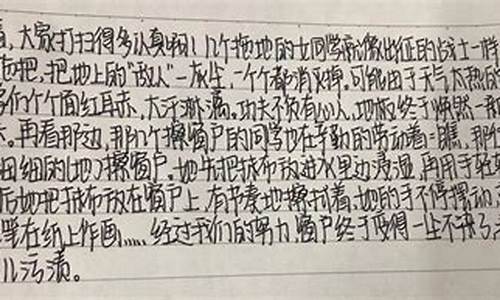 看,大家打扫得多认真啊!几个拖地的女同学就像出征的战士一样
拖把,把地上的“敌人”—灰尘,一个个都消灭掉。可能由于天气太热的
们个个面红耳赤,大汗淋漓。功夫不负有心人,地板终于焕然一新
。再看那边,那几个擦窗户的同学也在辛勤的劳动着:瞧,那
细细的(地)擦窗户。她先把抹布放进水里边浸湿,再用手
后她把抹布放在窗户上,有节奏地擦拭着,她的手不停摆动,
笔在纸上作画,,,,,,经过我们的努力,窗户终于变得一尘不染了,
儿污渍。